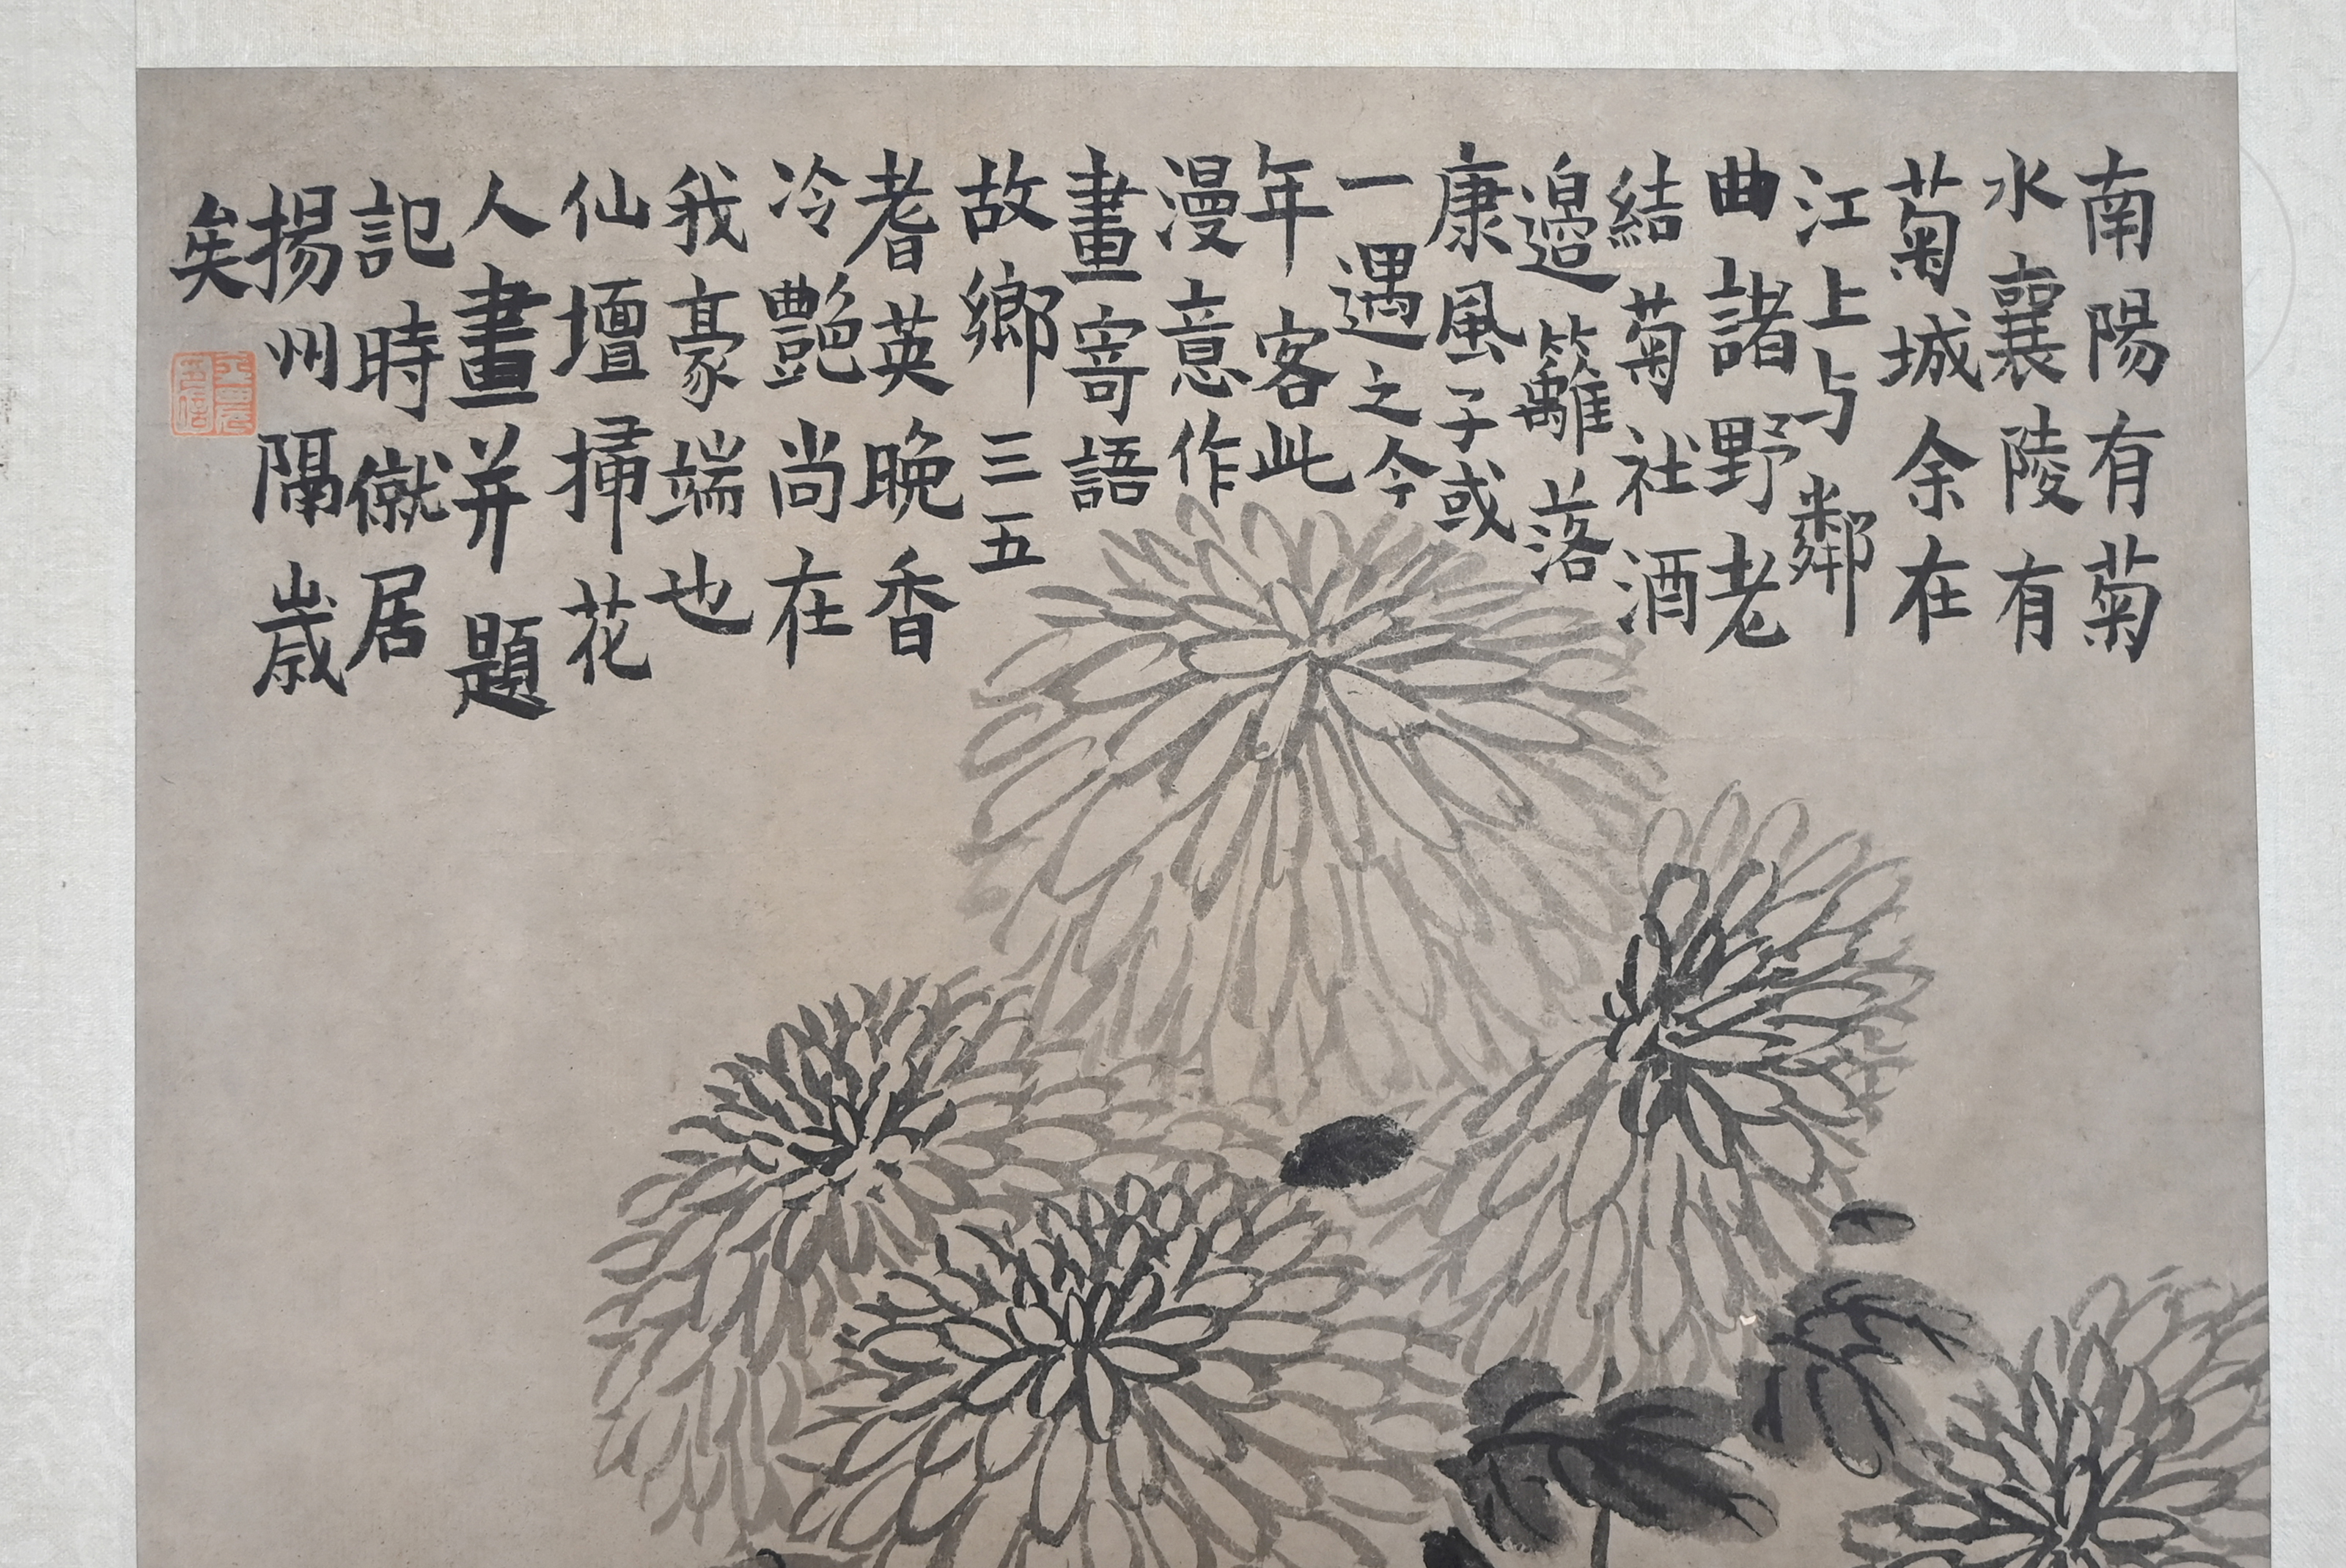 南陽有菊
水襄陵有
菊城余在
江上与鄰
曲諸野老
結菊社酒
邉籬落
康風子或
一遇之今
年客此
漫意作
畫寄語
故鄉三五
耆英晚香
冷艷尚在
我豪端也
仙壇掃花
人畫并題
記時僦居
揚州隔歲
矣